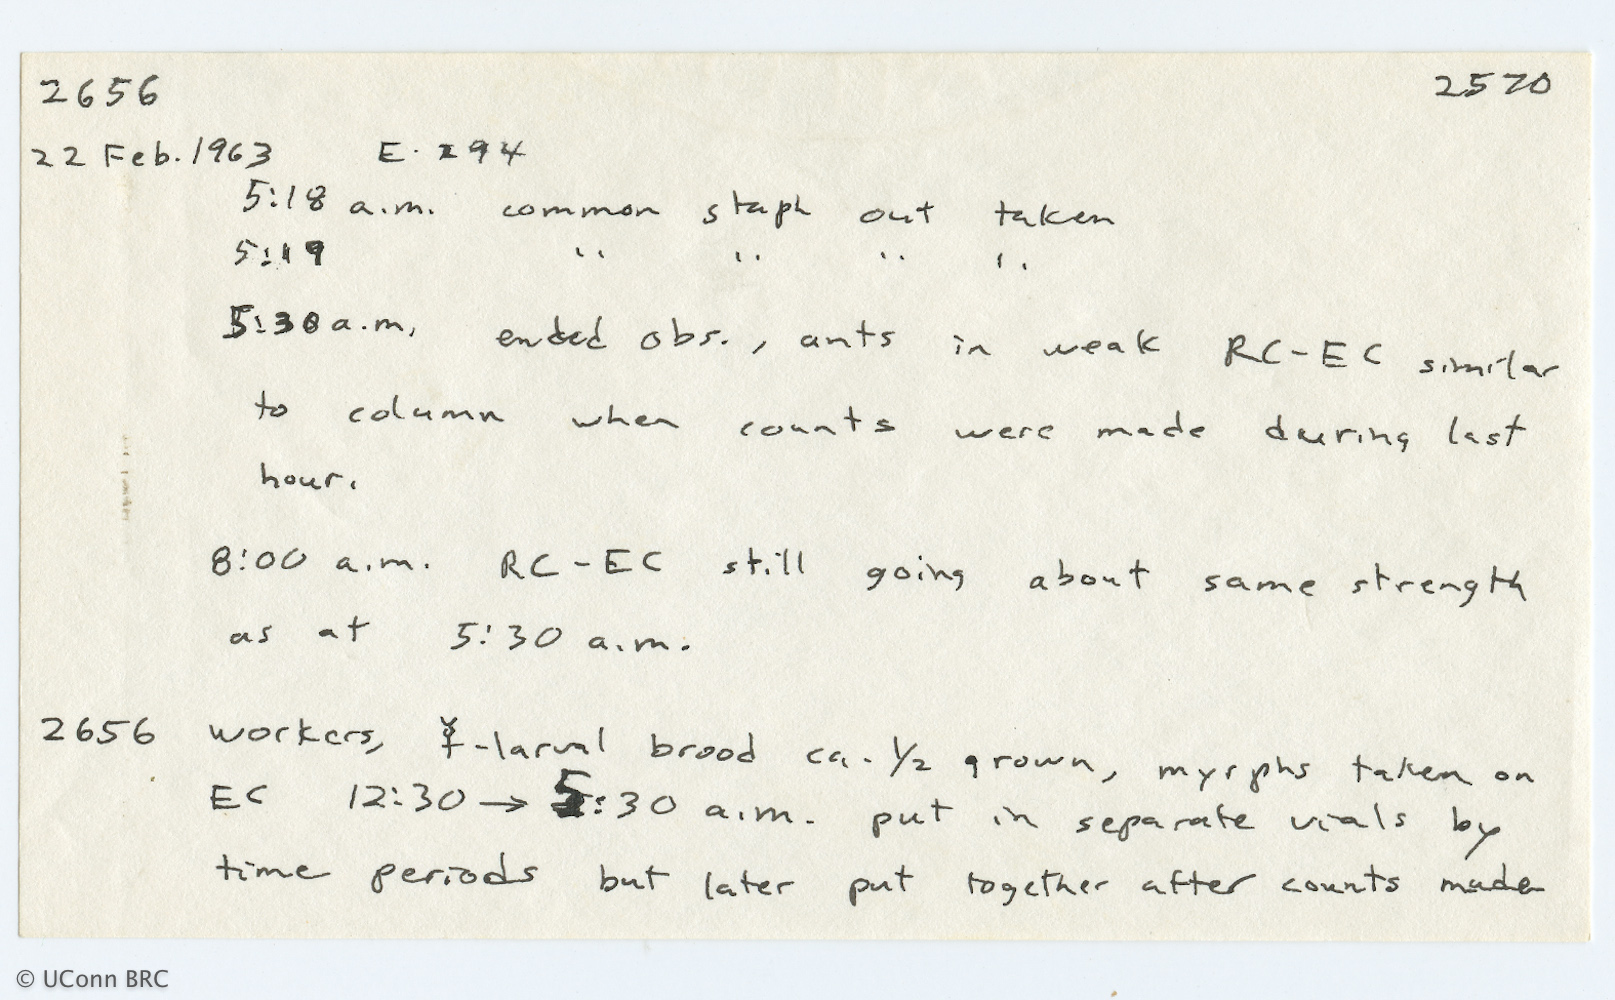 2656 2570
22 Feb. 1963 E. 294
5:18 a.m. common staph out taken
5:19 " " " "
5:30 a.m. ended obs., ants in weak RC-EC similar
to column when counts were made during last
hour.
8:00 a.m. RC-EC still going about same strength
as at 5:30 a.m.
2656 workers, ☿-larval brood ca. 1/2 grown, myrphs taken on
EC 12:30 → 5:30 a.m. put in separate vials by
time periods but later put together after counts made
© UConn BRC